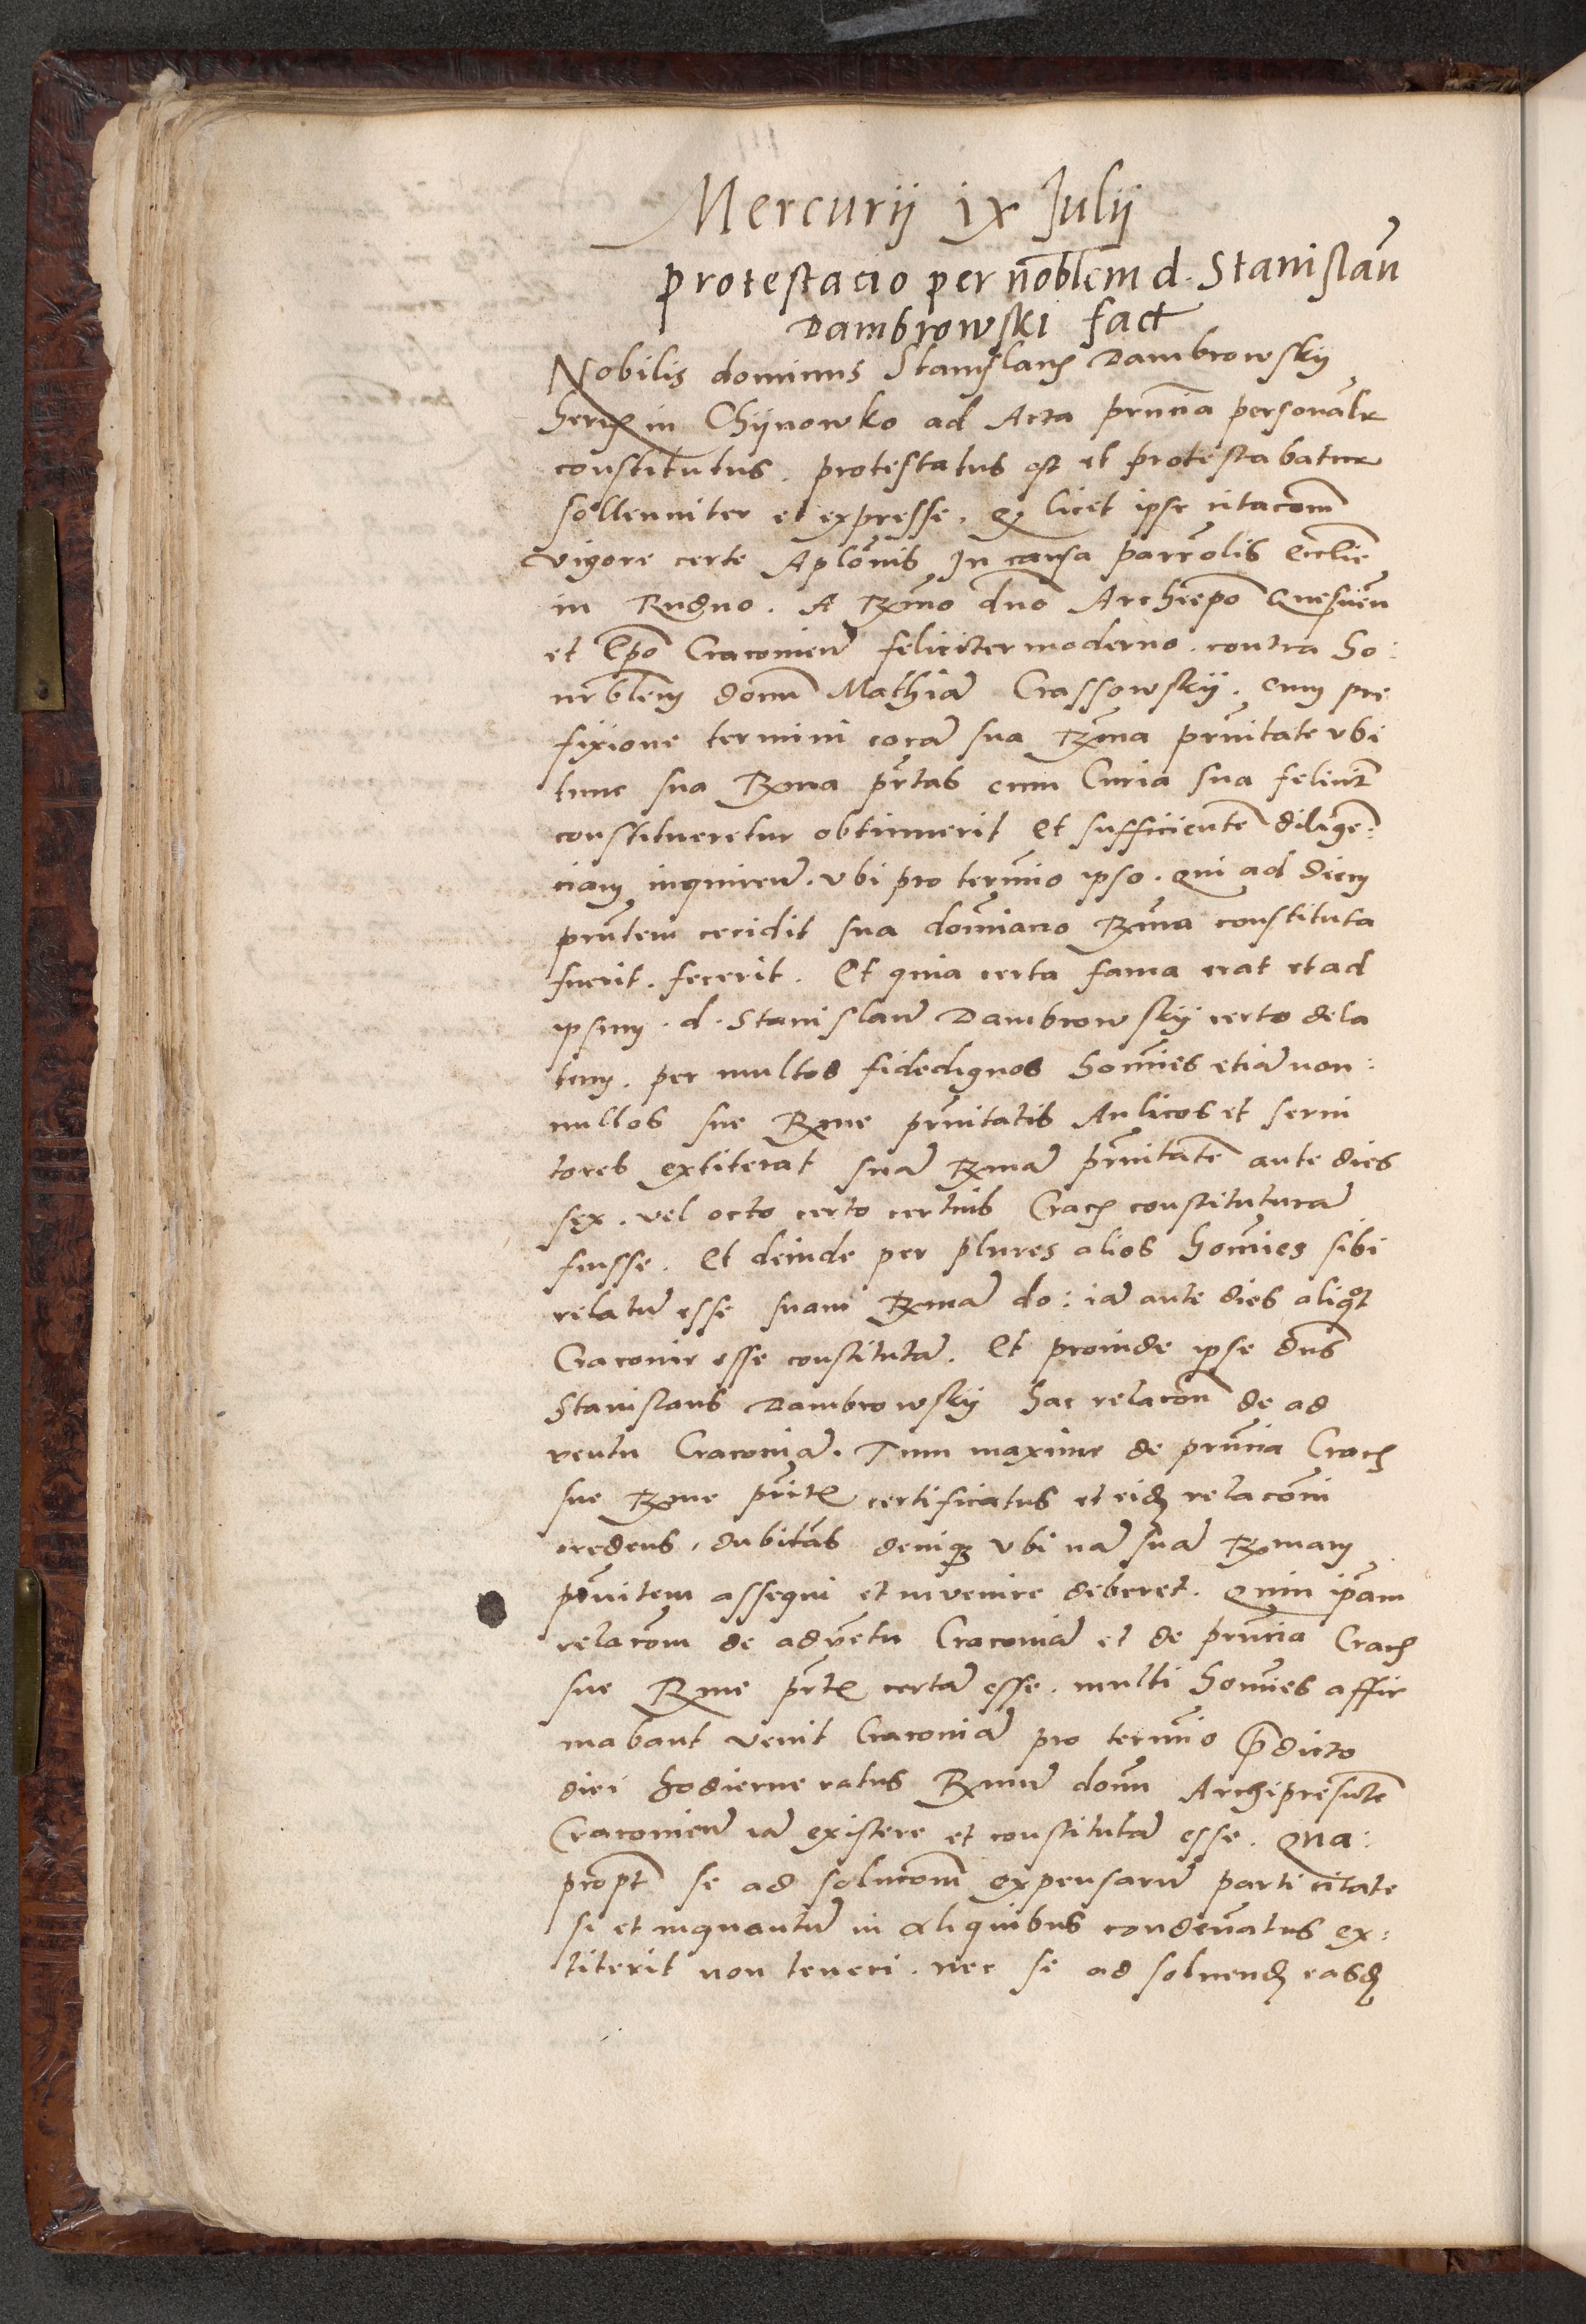 Mercurij ix Julij
protestacio per nobłem d. Stanislaũ
Dambrowski fact
Nobilis dominus Stanislaus Dambrowskij
heres in Chijnowko ad Acta pñncia personałr
constitutus. protestatus est et protestabatur
sollenniter et expresse. q licet ipse citacom̃
vigore certe Aplõnis In causa parrolis Ecclie
in Rudno. A Rx̃mo dño Archiepõ Gnesnen̄
et Epõ Cracovien̄ feliciter moderno. contra ho:
norłblem domũ Mathiã Crassowskij. cum pre
fixione termini corã sua Rx̃ma pr̃nitate vbi
tunc sua Rx̃ma pr̃tas cum Curia sua felicit̃
constitueretur obtinuerit Et sufficientẽ diligẽ:
ciam inquiren̄. vbi pro terminõ ipso. qui ad diem
pñtem cecidit sua domĩnacio Rx̃ma constituta
fuerit. fecerit. Et quia certa fama erat et ad
ipsum. d. Stanislaũ Dambrowskij certo dela
tum. per multos fidedignos homĩes etiã non:
nullos sue Rx̃me pr̃nitatis Aulicos et servi
tores extiterat suã Rx̃mã pr̃nitatẽ ante dies
sex. vel octo certo certius Crac constituturã
fuisse. Et deinde per plures alios homĩes sibi
relatũ esse suam Rx̃mã do: iã ante dies aliqot
Cracovie esse constitutã. Et proinde ipse dñs
Stanislaus Dambrowskij hac relacõn de ad
ventu Cracoviã. Tum maxime de pñncia Crac
sue Rx̃me pr̃nit certificatus et eid relacõni
credens, dubitãs deniq vbi nã suã Rx̃mam
pr̃nitem assequi et invenire deberet. Quin ip̃am
relacõm de advẽtu Cracoviã et de pñncia Crac
sue Rx̃me pr̃t certã esse. multi homĩes affir
mabant venit Cracoviã pro terminõ p̃dicto
diei hodierne ratus Rx̃mũ domũ Archipresulẽ
Cracovien̄ iã existere et constitutã esse. Qua:
propt̃ se ad solucom̃ expensarũ parti citate
si et inquantũ in aliquibus condemñatus ex:
titerit non teneri. nec se ad solvend easd